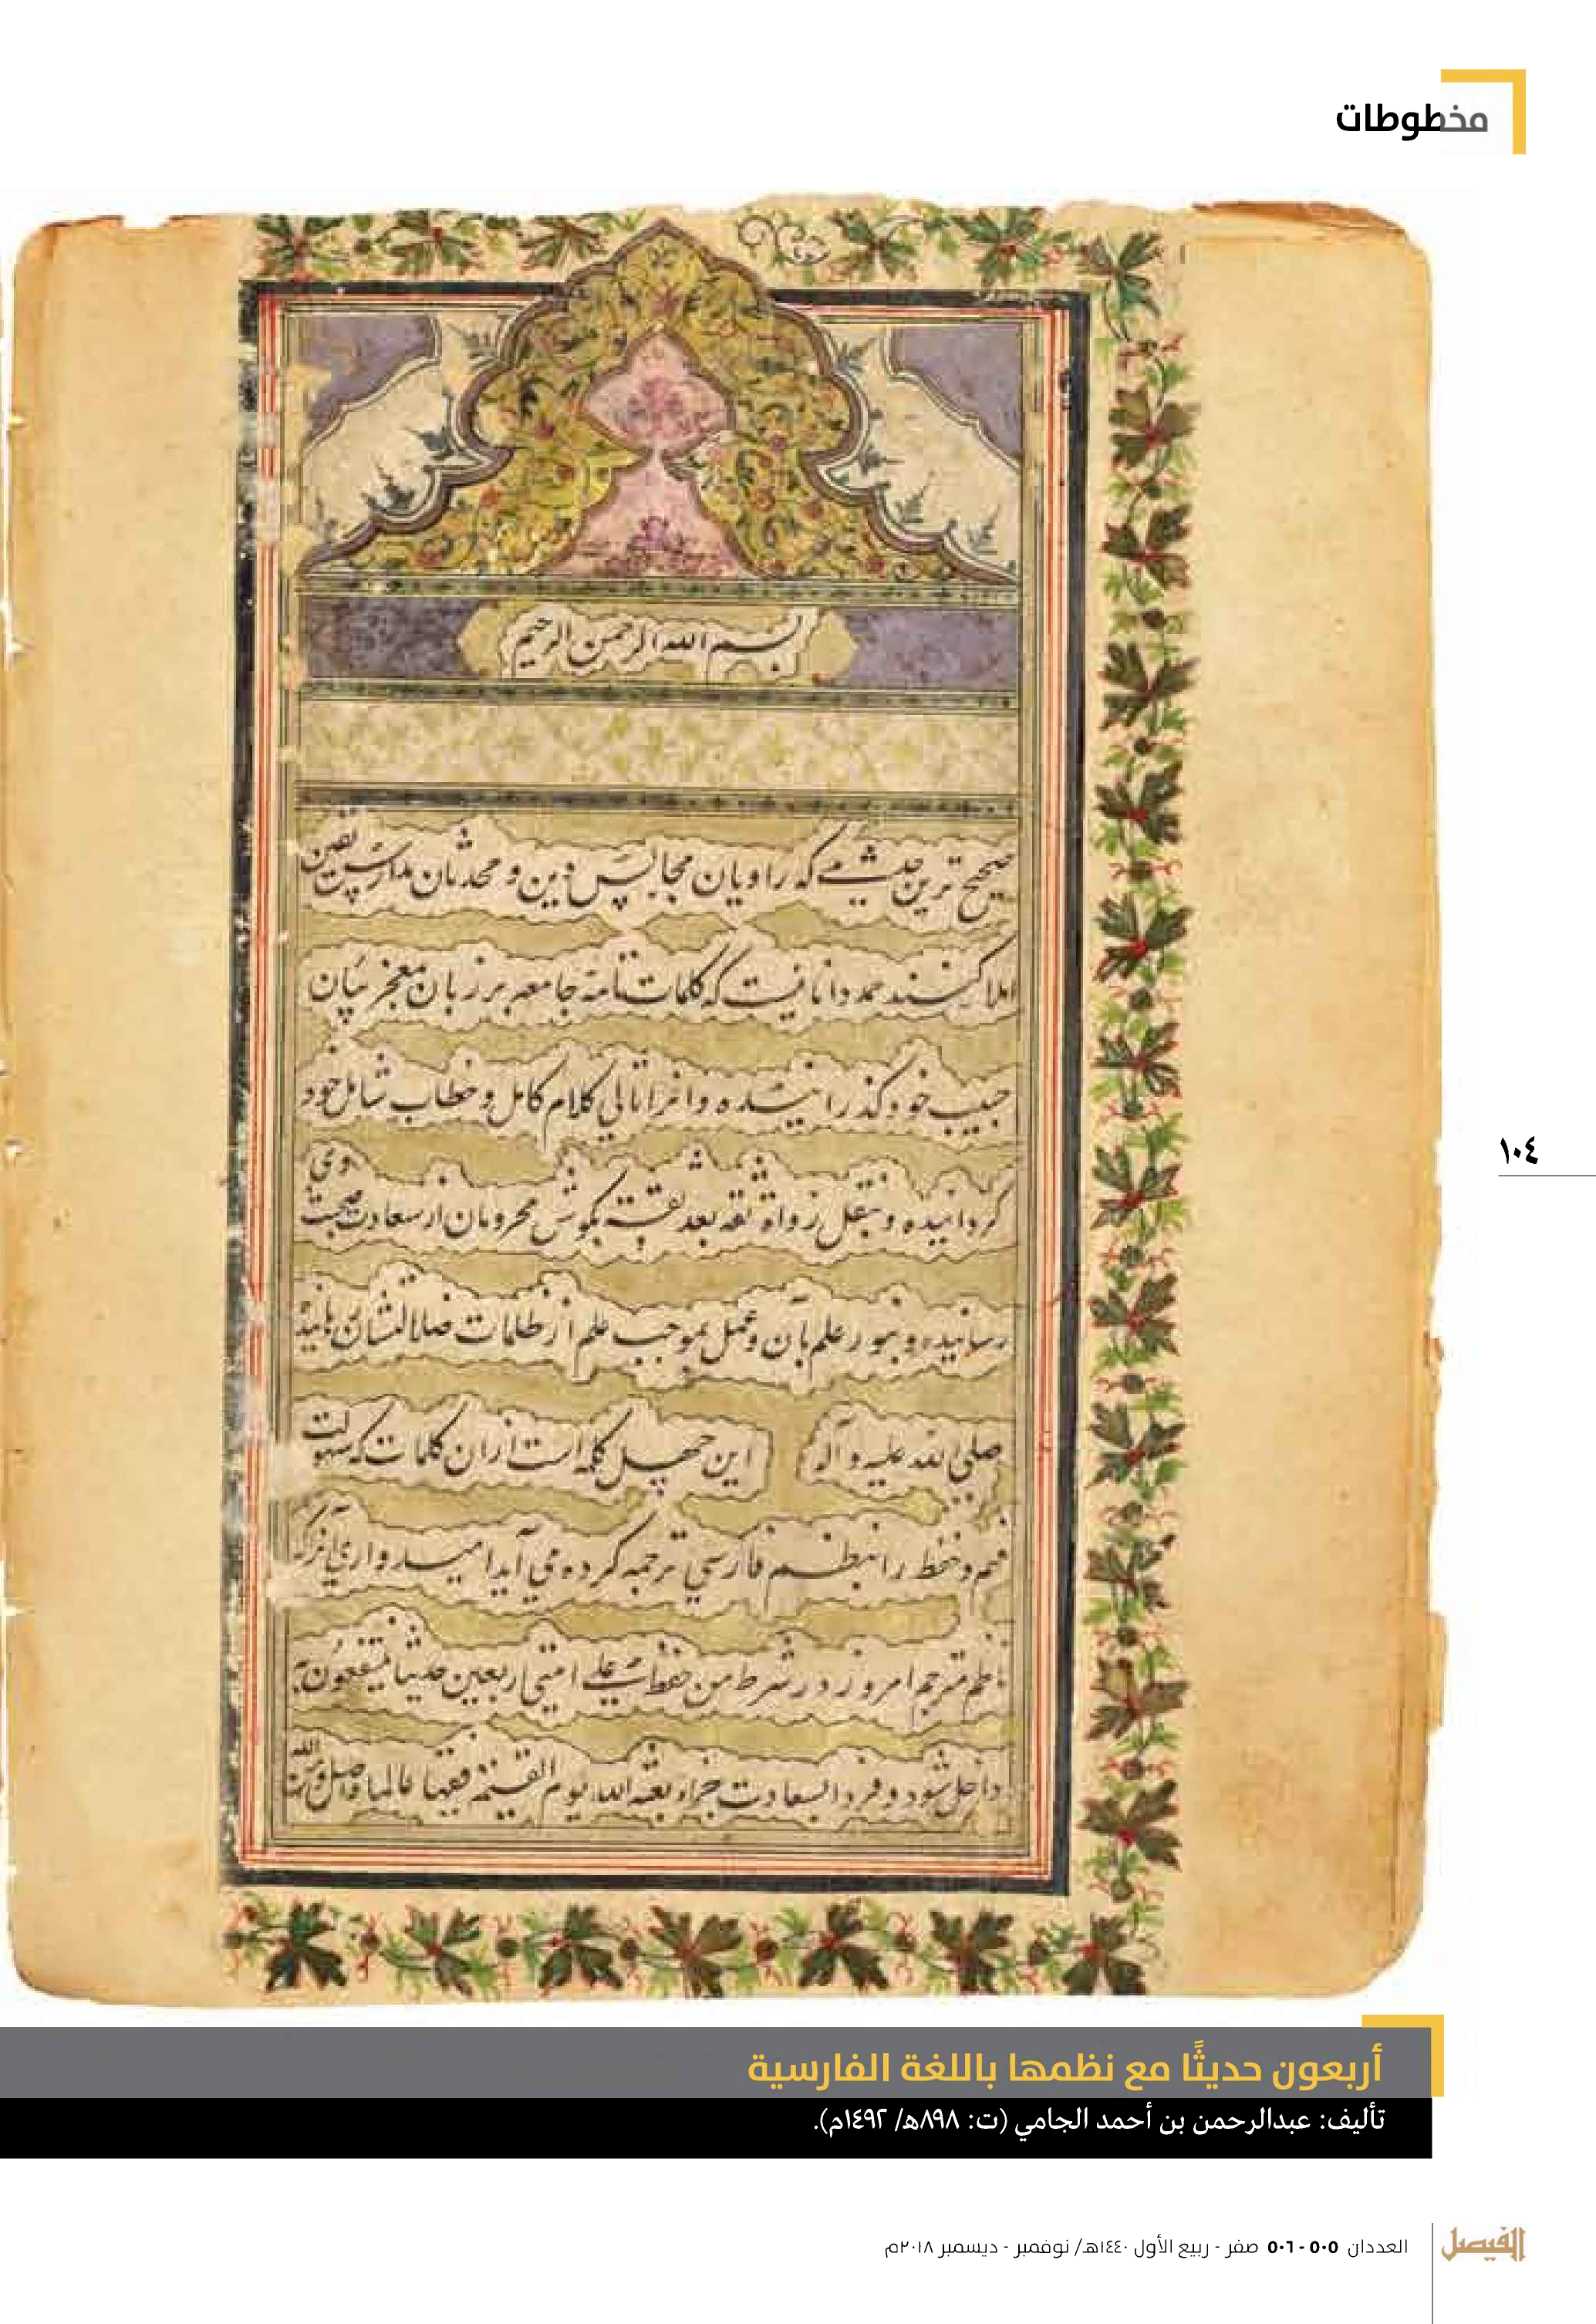 مخطوطات
بسم الله الرحمن الرحيم
صحیح ترین حدیثی که راویان مجالس دین و محدثان مدارس یقین
املا کنند حمد دانائیست که کلمات تامهٔ جامعه بر زبان معجز بیان
حبیب خود گذرانیده و انرا تالی کلام کامل و خطاب شامل خود
گردانیده و بنقل رواة ثقه بعد ثقه بگوش محرومان از سعادت صحبت وی
رسانیده و بنور علم بآن و عمل بموجب علم از ظلمات ضلالتشان رهانیده
صلی الله علیه و آله این چهل کلمه است ازان کلمات که سهولت
فهم و حفظ را بنظم فارسی ترجمه کرده می آید امیدواری آنکه
ناظم مترجم امروز در شرط من حفظ علی امتی اربعین حدیثا ینتفعون به
داخل شود و فردا بسعادت جزاء بعثه الله یوم القیمة فقیها عالما واصل و من الله
١٠٤
أربعون حديثًا مع نظمها باللغة الفارسية
تأليف: عبدالرحمن بن أحمد الجامي (ت: ٨٩٨هـ/ ١٤٩٢م).
الفيصل
العددان ٥٠٥ - ٥٠٦ صفر - ربيع الأول ١٤٤٠هـ/ نوفمبر - ديسمبر ٢٠١٨م